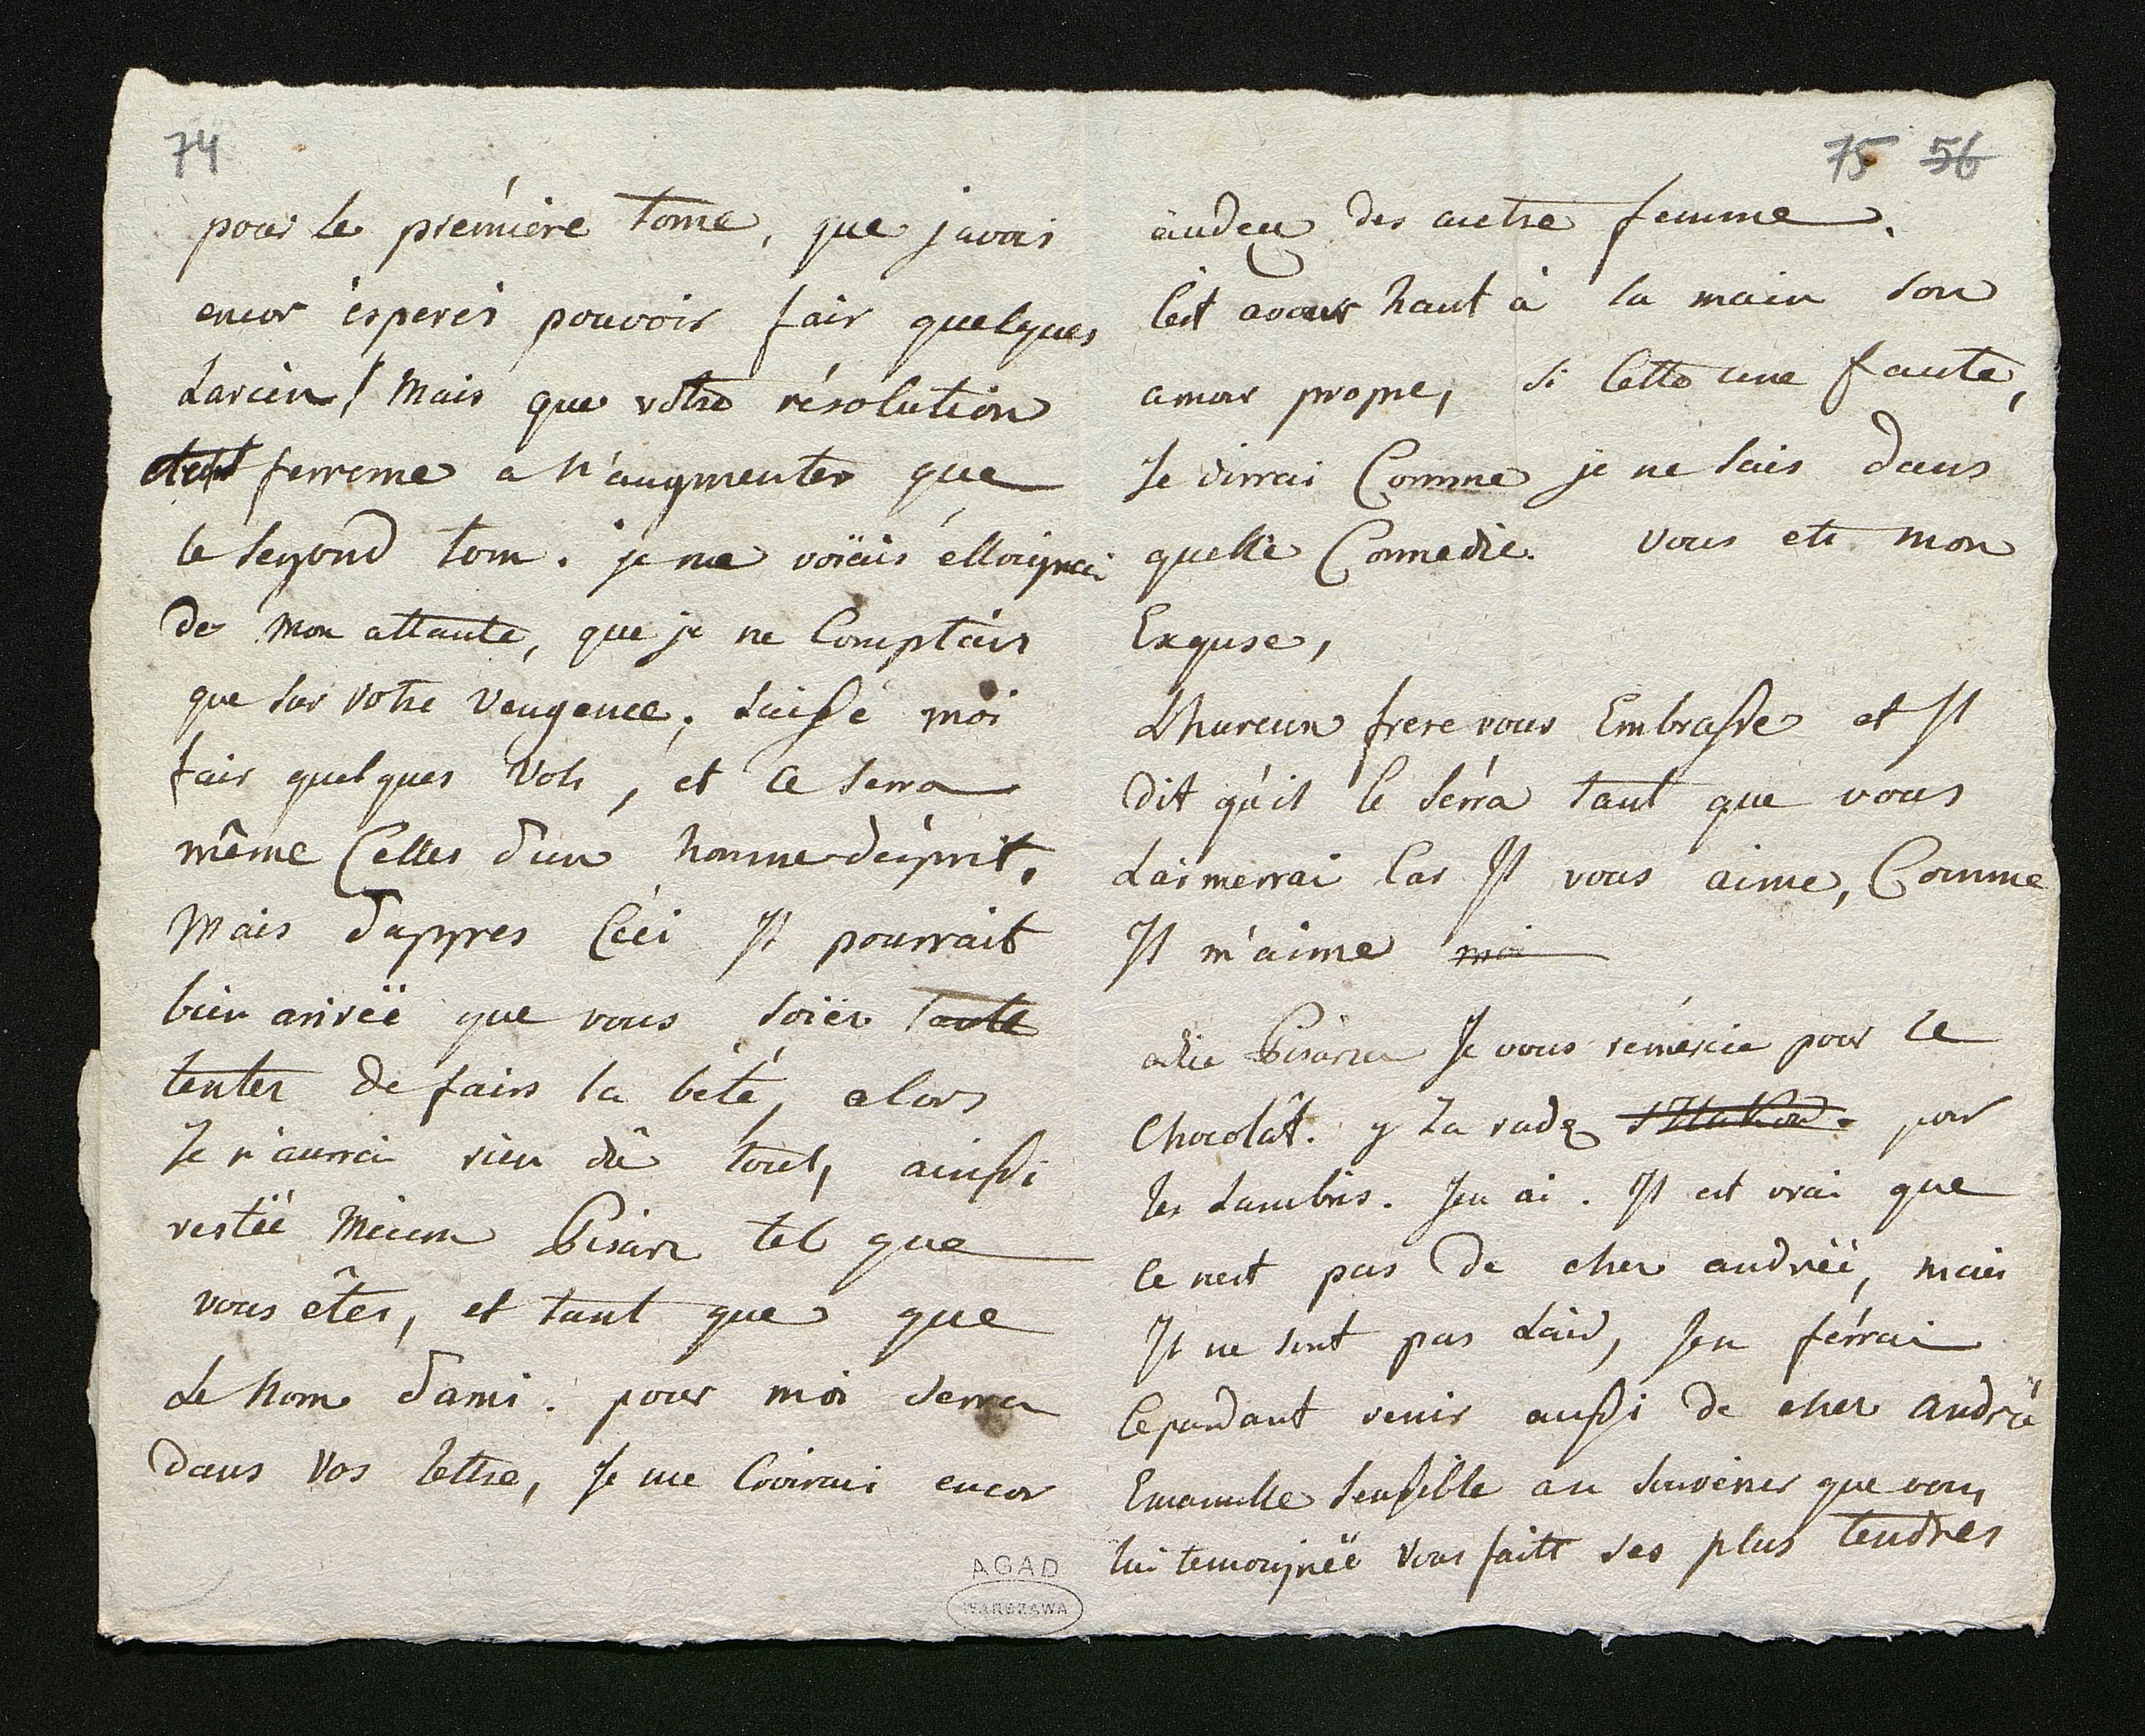 74
pour le première tome, que javois
encor ésperés pouvoir fair quelques
Larcin! Mais que vôtre résolution
ferreme a n'augmenter que
le segond tom. je me voïais élloignai
de mon attante, que je ne Comptais
que sur votre Vengence. Laissé moi
fair quelques Vols, et ce serra
même Celles d'un homme d'esprit.
Mais d'appres Céci Jl pourrait
bien arivëe que vous soïer
tenter de fairs la béte, alors
Je n'aurrai rien dû tout, ainssi
restëé Pisarz tel que
vous êtes, et tant que que
Le Nom d'ami. pour moi serra
dans Vos lettre, Je me Croirai encor
75 56
audeçu des autre femme.
Cest avoir haut à la main son
amour propre, si Cette une faute,
Je dirrai Comme je ne sais dans
quelle Commedie. Vous ete mon
Exquse,
L'hureux frere vous Embrasse et Jl
dit qu'il le sérra tant que vous
L'aimerrai Car Jl vous aime, Comme
Jl m'aime moi
adie Je vous rémércie pour le
Chocolât. y Za radę pour
les Lambris. Jen ai. Jl est vrai que
ce nest pas de cher andrëé, mais
Jl ne sont pas Laid, Jen férrai
Cepandant venir aussi de cher andrëé
Emanuelle sensible au souvénir que vous
lui temoignëé Vous faitt ses plus tendres
AGAD
WARSZAWA